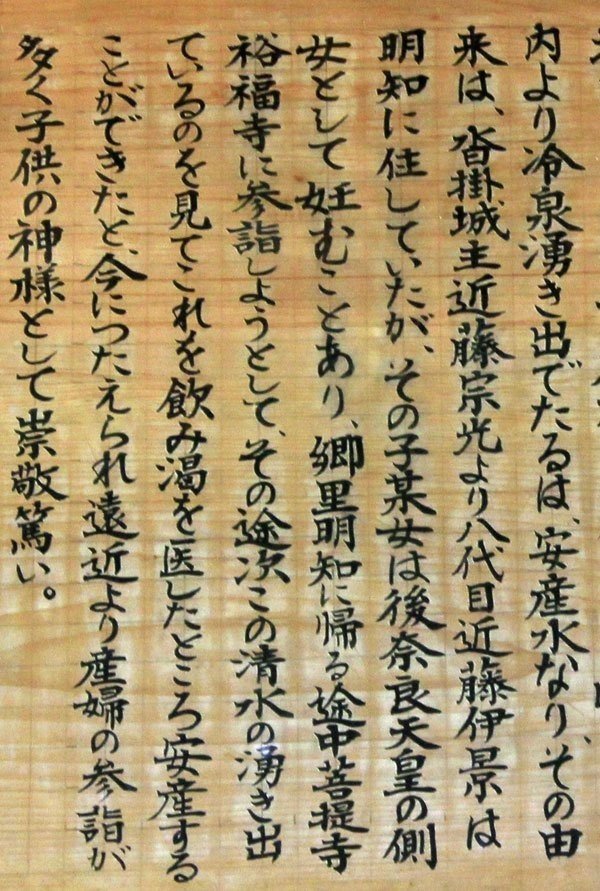 内より冷泉湧き出でたるは、安産水なり、その由
来は、沓掛城主近藤宗光より八代目近藤伊景は
明知に住していたが、その子某女は後奈良天皇の側
女として妊むことあり、郷里明知に帰る途中菩提寺
裕福寺に参詣しようとして、その途次この清水の湧き出
ているのを見てこれを飲み渇を医したところ安産する
ことができたと、今につたえられ遠近より産婦の参詣が
多く子供の神様として崇敬篤い。